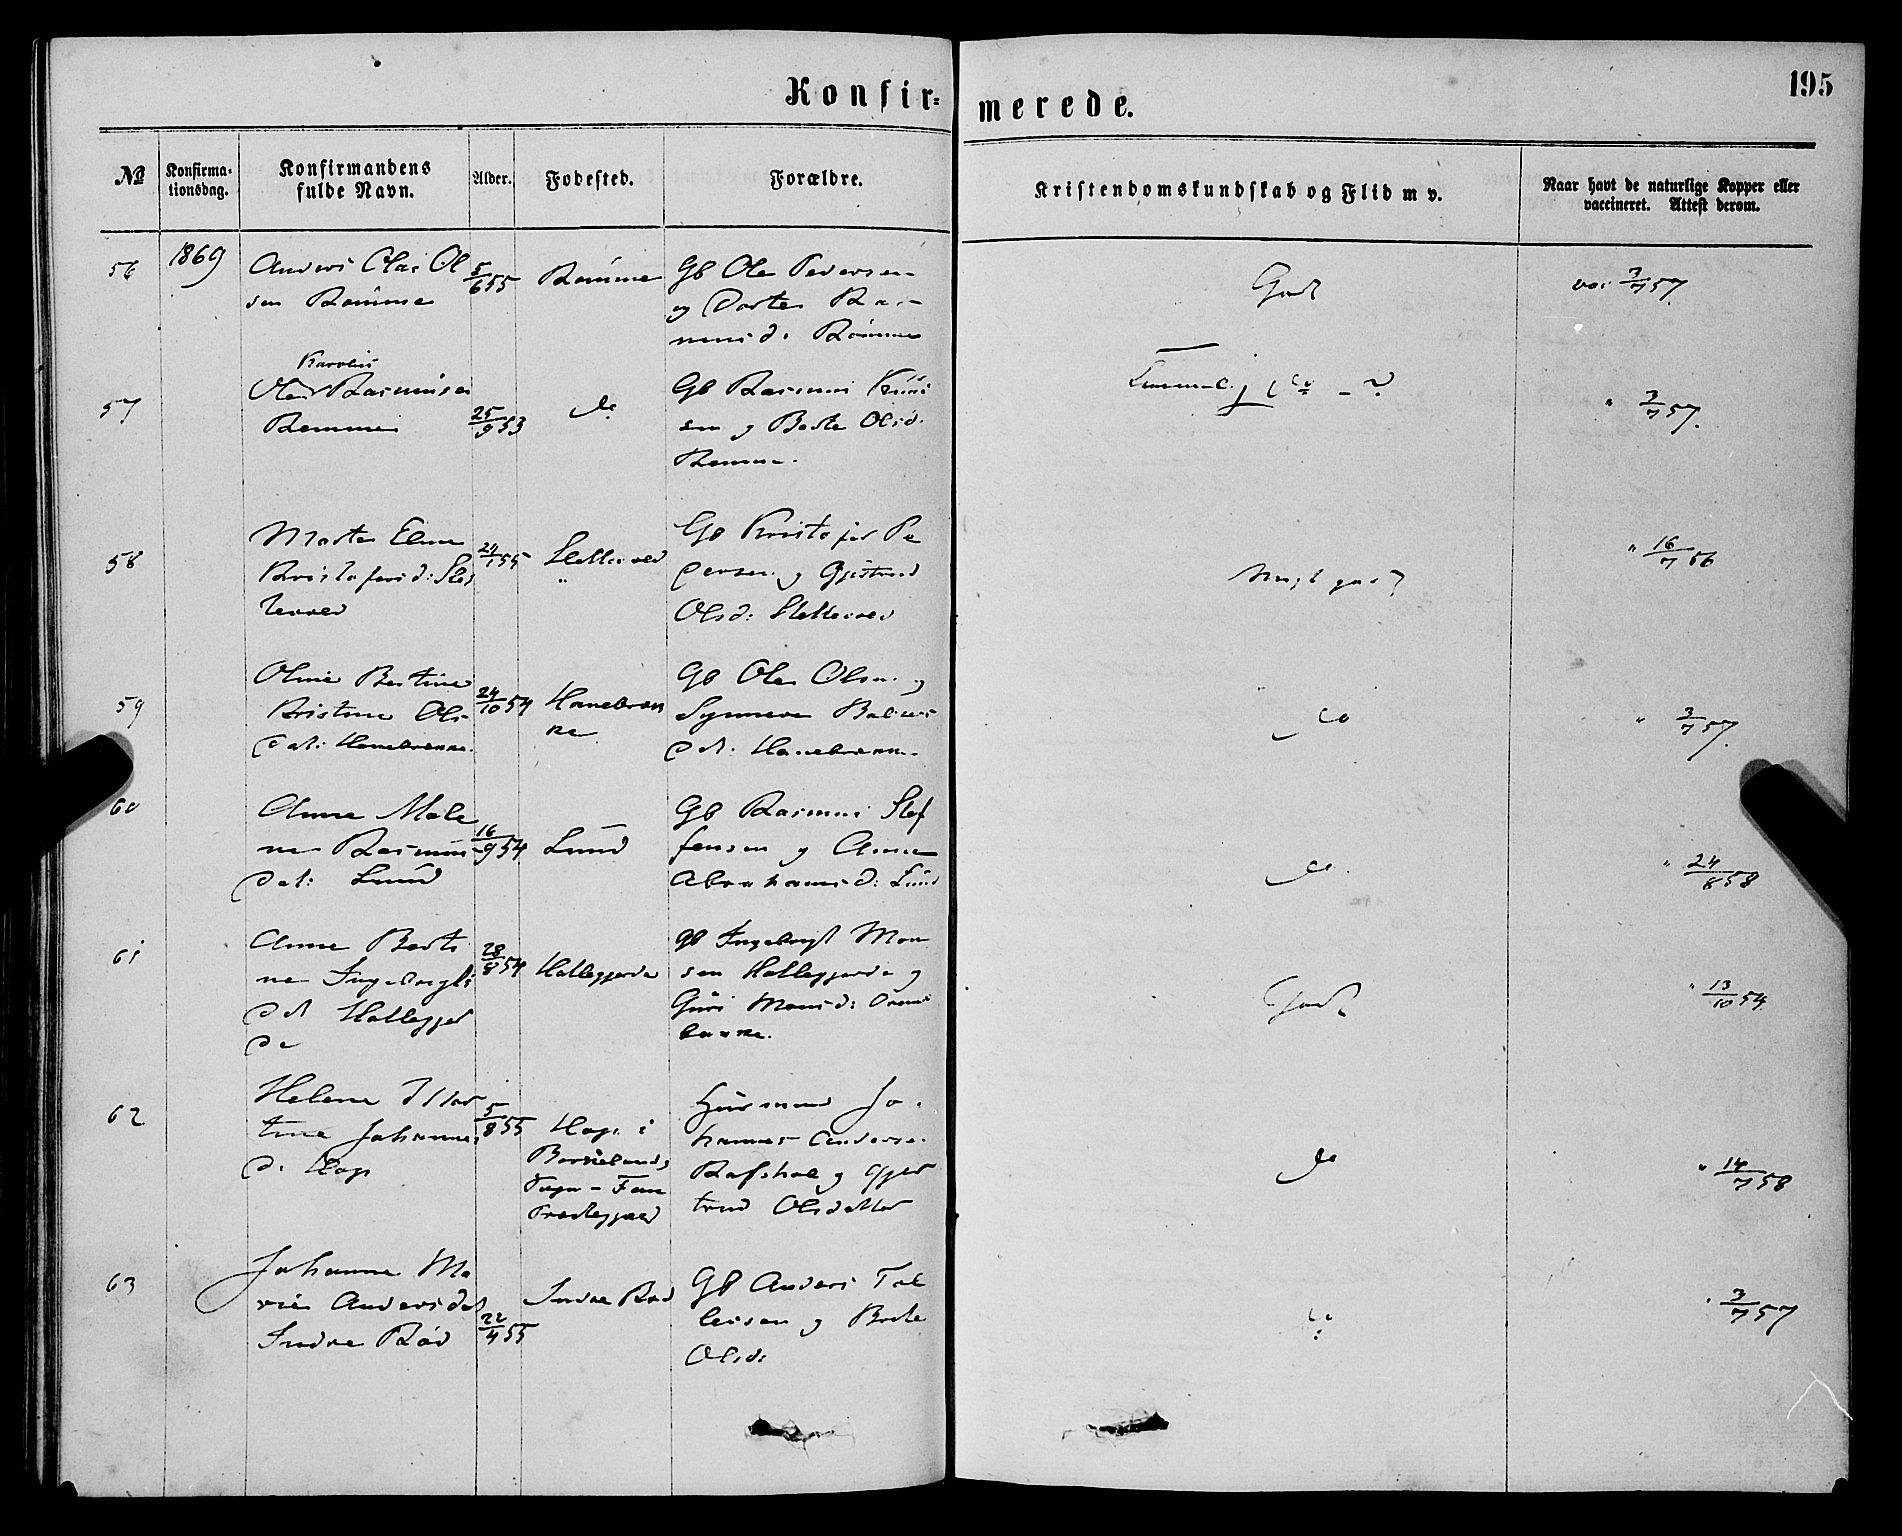 Konfir=
merede.
195
№
Konfirma=
tionsdag.
Konfirmandens
fulde Navn.
Alder.
Fodested.
Forældre.
Kristendomskundskab og Flid m v.
Naar havt de naturlige Kopper eller
vaccineret. Attest derom.
56
1869
Anders Olai Ol
sen Romme
5/6 55
Romme
Gb Ole Pedersen
og Dorte Ras-
musd: Romme
Godt
vac 3/7 57.
57
Karolus
Ole Rasmusen
Remme
25/9 53
do
Gb Rasmus Knud
sen og Berte Olsd.
Remme.
" 3/7 57.
58
Marte Eline
Kristofersd: Slet
tevold
24/1 55
Slettevold
Gb Kristofer Pe
dersen og Gjertrud
Olsd: Slettevold
Meget godt
" 16/7 56
59
Oline Bertine
Kristine Ols
dat: Hanebrekke.
24/10 54
Gb Ole Olsen og
Synneva
do
" 3/7 57.
60
Anne Male
ne Rasmus
dat: Lund
16/9 54
Lund
Gb Rasmus Stef
fensen og Anne
Abrahamsd: Lund
do.
" 24/8 58
61
Anne Berti
ne Ingebrigts
dt Hallegjer
de
28/8 54
Hallegjerde
Gb Ingebrigt Mon
sen Hallegjerde og
Guri Monsd:
Godt
" 13/10 54.
62
Helene
tine Johannes
d: Hop
5/8 55
Hop i
Præstegjæld
Huusmand Jo-
hannes Andersen
og Gjer
trud Olsdatter
do
" 14/7 58
63
Johanne Ma
rie Andersdat
Indre Rød
22/4 55
Indre Rød
Gb Anders Tol
leisen og Berte
Olsd:
" 3/7 57